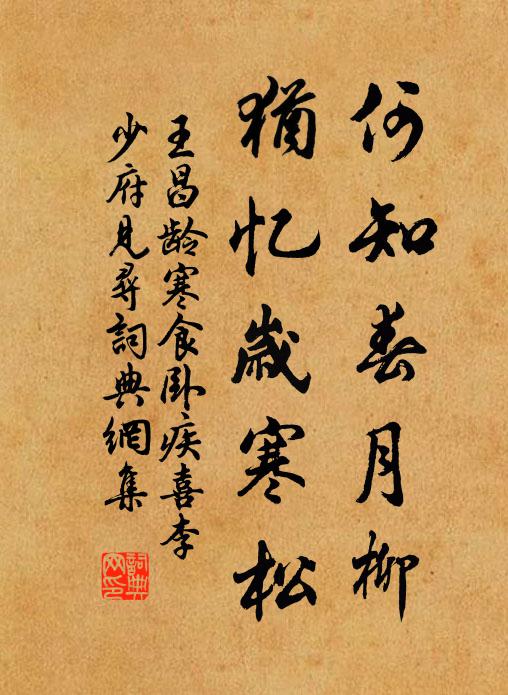 何知春月柳
猶忆歲寒松
王昌龄寒食卧疾喜李
少府見尋詞典網集
詞典
网印